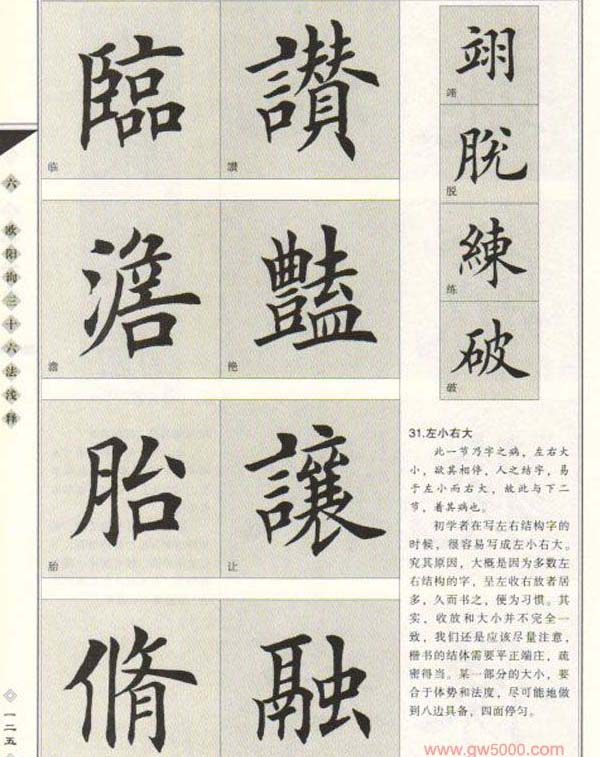 六 欧阳询三十六法浅释
一二五
臨
临
讚
讚
澹
澹
豔
艳
胎
胎
讓
让
脩
融
翊
翊
脱
脱
練
练
破
破
31.左小右大
此一节乃字之病，左右大
小，欲其相停，人之结字，易
于左小而右大，故此与下二
节，着其病也。
初学者在写左右结构字的
时候，很容易写成左小右大。
究其原因，大概是因为多数左
右结构的字，呈左收右放者居
多，久而书之，便为习惯。其
实，收放和大小并不完全一
致，我们还是应该尽量注意，
楷书的结体需要平正端庄，疏
密得当。某一部分的大小，要
合于体势和法度，尽可能地做
到八边具备，四面停匀。
www.gw5000.com